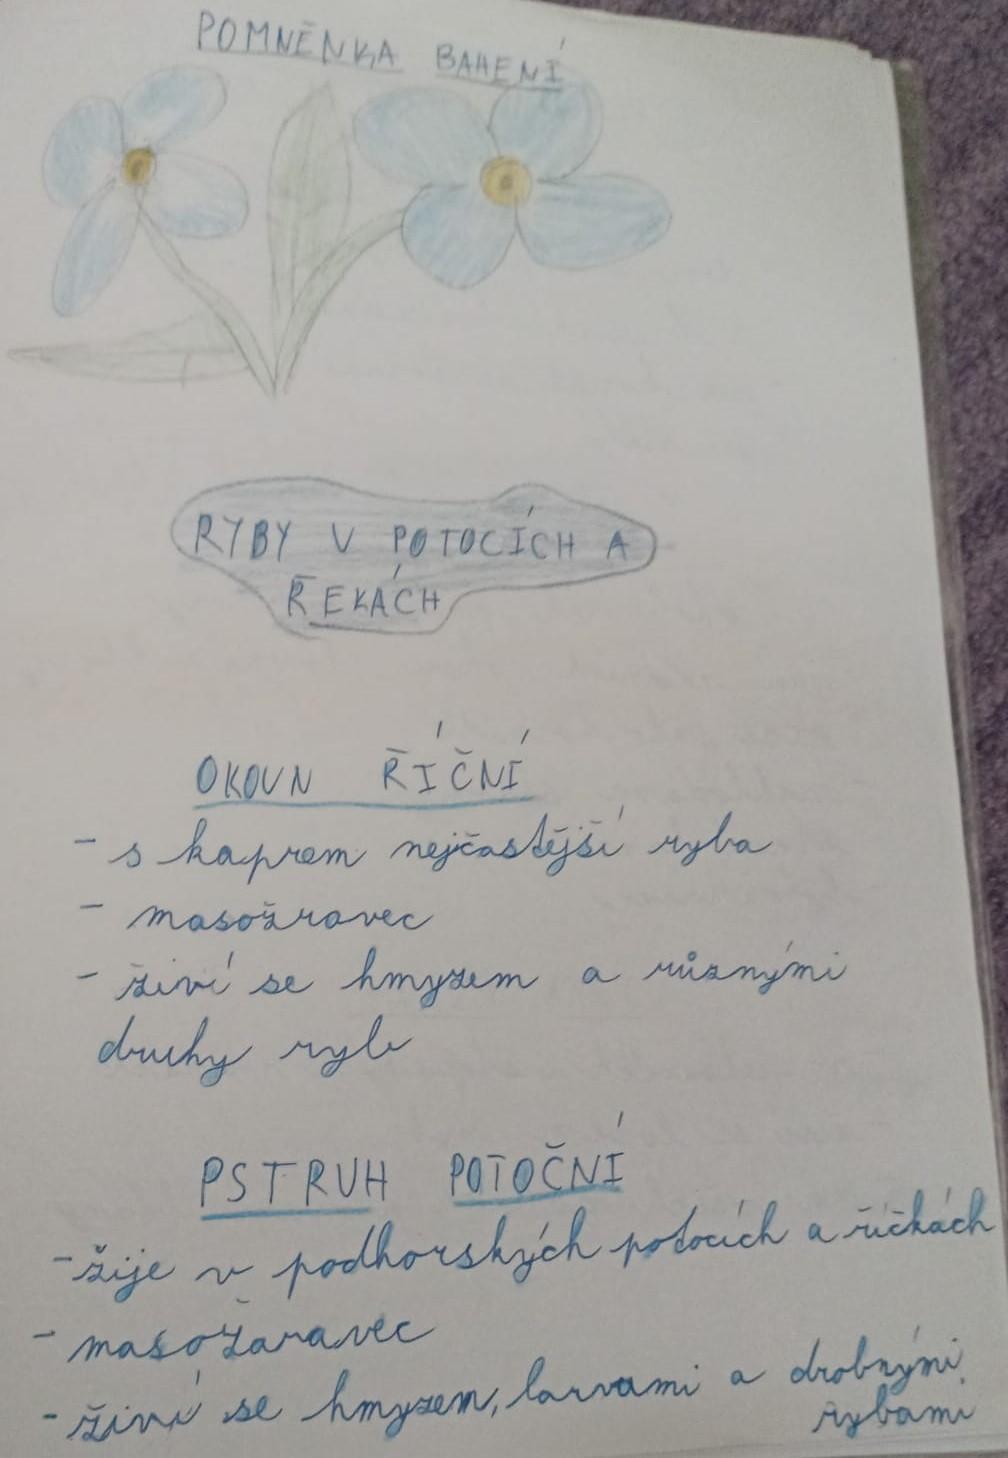 POMNĚNKA BAHENÍ
RYBY V POTOCÍCH A
ŘEKÁCH
OKOUN ŘÍČNÍ
- s kaprem nejčastější ryba
- masožravec
- živí se hmyzem a různými
druhy ryb
PSTRUH POTOČNÍ
- žije v podhorských potocích a říčkách
- masožaravec
- živí se hmyzem, larvami a drobnými
rybami